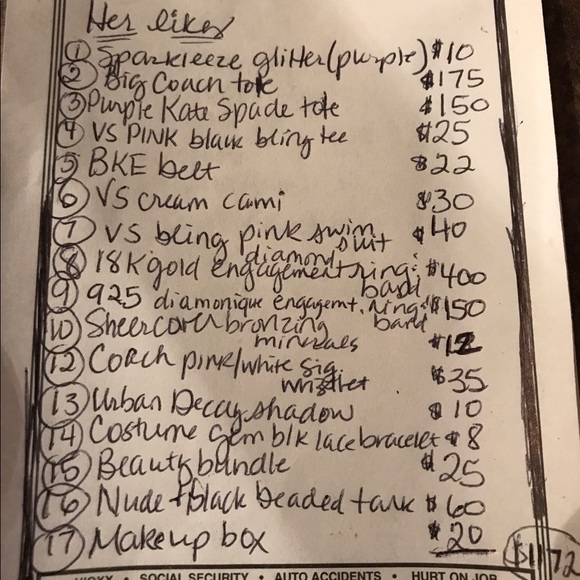 Her likes
1 Sparkleeze glitter (purple) $10
2 Big Coach tote $175
3 Purple Kate Spade tote $150
4 VS PINK black bling tee $25
5 BKE belt $22
6 VS cream cami $30
7 VS bling pink swim suit $40
8 18K gold diamond engagement ring: band $400
9 925 diamonique engagemt. ring: band $150
10 Sheercover bronzing minerals $12
12 Coach pink/white sig. wristlet $35
13 Urban Decay shadow $10
14 Costume gem blk lace bracelet $8
15 Beauty bundle $25
16 Nude + black beaded tank $60
17 Makeup box $20
$1172
SOCIAL SECURITY • AUTO ACCIDENTS • HURT ON JOB